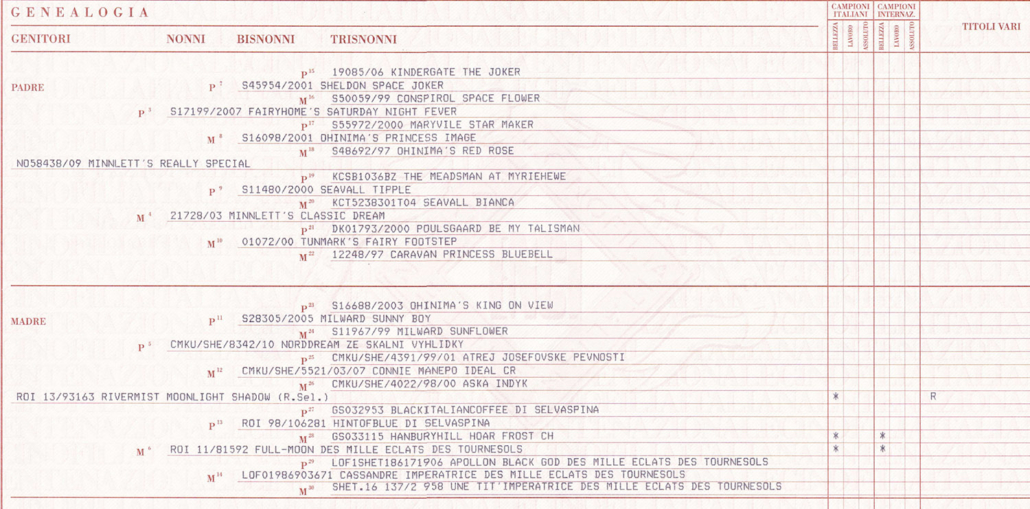 GENEALOGIA
CAMPIONI ITALIANI CAMPIONI INTERNAZ.
GENITORI NONNI BISNONNI TRISNONNI BELLEZZA LAVORO ASSOLUTO BELLEZZA LAVORO ASSOLUTO TITOLI VARI
P 15 19085/06 KINDERGATE THE JOKER
PADRE P 7 S45954/2001 SHELDON SPACE JOKER
M 16 S50059/99 CONSPIROL SPACE FLOWER
P 3 S17199/2007 FAIRYHOME'S SATURDAY NIGHT FEVER
P 17 S55972/2000 MARYVILE STAR MAKER
M 8 S16098/2001 OHINIMA'S PRINCESS IMAGE
M 18 S48692/97 OHINIMA'S RED ROSE
NO58438/09 MINNLETT'S REALLY SPECIAL
P 19 KCSB1036BZ THE MEADSMAN AT MYRIEHEWE
P 9 S11480/2000 SEAVALL TIPPLE
M 20 KCT5238301T04 SEAVALL BIANCA
M 4 21728/03 MINNLETT'S CLASSIC DREAM
P 21 DK01793/2000 POULSGAARD BE MY TALISMAN
M 10 01072/00 TUNMARK'S FAIRY FOOTSTEP
M 22 12248/97 CARAVAN PRINCESS BLUEBELL
P 23 S16688/2003 OHINIMA'S KING ON VIEW
MADRE P 11 S28305/2005 MILWARD SUNNY BOY
M 24 S11967/99 MILWARD SUNFLOWER
P 5 CMKU/SHE/8342/10 NORDDREAM ZE SKALNI VYHLIDKY
P 25 CMKU/SHE/4391/99/01 ATREJ JOSEFOVSKE PEVNOSTI
M 12 CMKU/SHE/5521/03/07 CONNIE MANEPO IDEAL CR
M 26 CMKU/SHE/4022/98/00 ASKA INDYK
ROI 13/93163 RIVERMIST MOONLIGHT SHADOW (R.Sel.) * R
P 27 GS032953 BLACKITALIANCOFFEE DI SELVASPINA
P 13 ROI 98/106281 HINTOFBLUE DI SELVASPINA
M 28 GS033115 HANBURYHILL HOAR FROST CH * *
M 6 ROI 11/81592 FULL-MOON DES MILLE ECLATS DES TOURNESOLS * *
P 29 LOF1SHET186171906 APOLLON BLACK GOD DES MILLE ECLATS DES TOURNESOLS
M 14 LOF01986903671 CASSANDRE IMPERATRICE DES MILLE ECLATS DES TOURNESOLS
M 30 SHET.16 137/2 958 UNE TIT'IMPERATRICE DES MILLE ECLATS DES TOURNESOLS